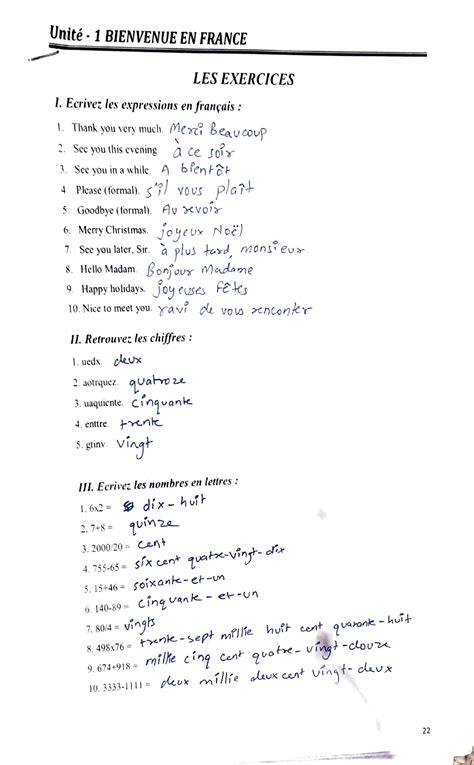 Unité - 1 BIENVENUE EN FRANCE
LES EXERCICES
I. Ecrivez les expressions en français :
1. Thank you very much. Merci Beaucoup
2. See you this evening à ce soir
3. See you in a while. A bientôt
4 Please (formal). s'il vous plaît
5. Goodbye (formal). Au revoir
6. Merry Christmas. joyeux Noël
7. See you later, Sir. à plus tard, monsieur
8. Hello Madam. Bonjour Madame
9. Happy holidays. joyeuses Fêtes
10. Nice to meet you. ravi de vous rencontrer
II. Retrouvez les chiffres :
1. uedx. deux
2. aotrquez. quatroze
3. uaquicnte. Cinquante
4. enttre. trente
5. gtinv. vingt
III. Ecrivez les nombres en lettres :
1. 6x2 = dix-huit
2. 7+8 = quinze
3. 2000/20 = cent
4. 755-65 = six cent quatre-vingt-dix
5. 15+46 = soixante-et-un
6. 140-89 = cinquante-et-un
7. 80/4 = vingts
8. 498x76 = trente-sept millie huit cent quarante-huit
9. 674+918 = millie cinq cent quatre-vingt-douze
10. 3333-1111 = deux millie deux cent vingt-deux
22